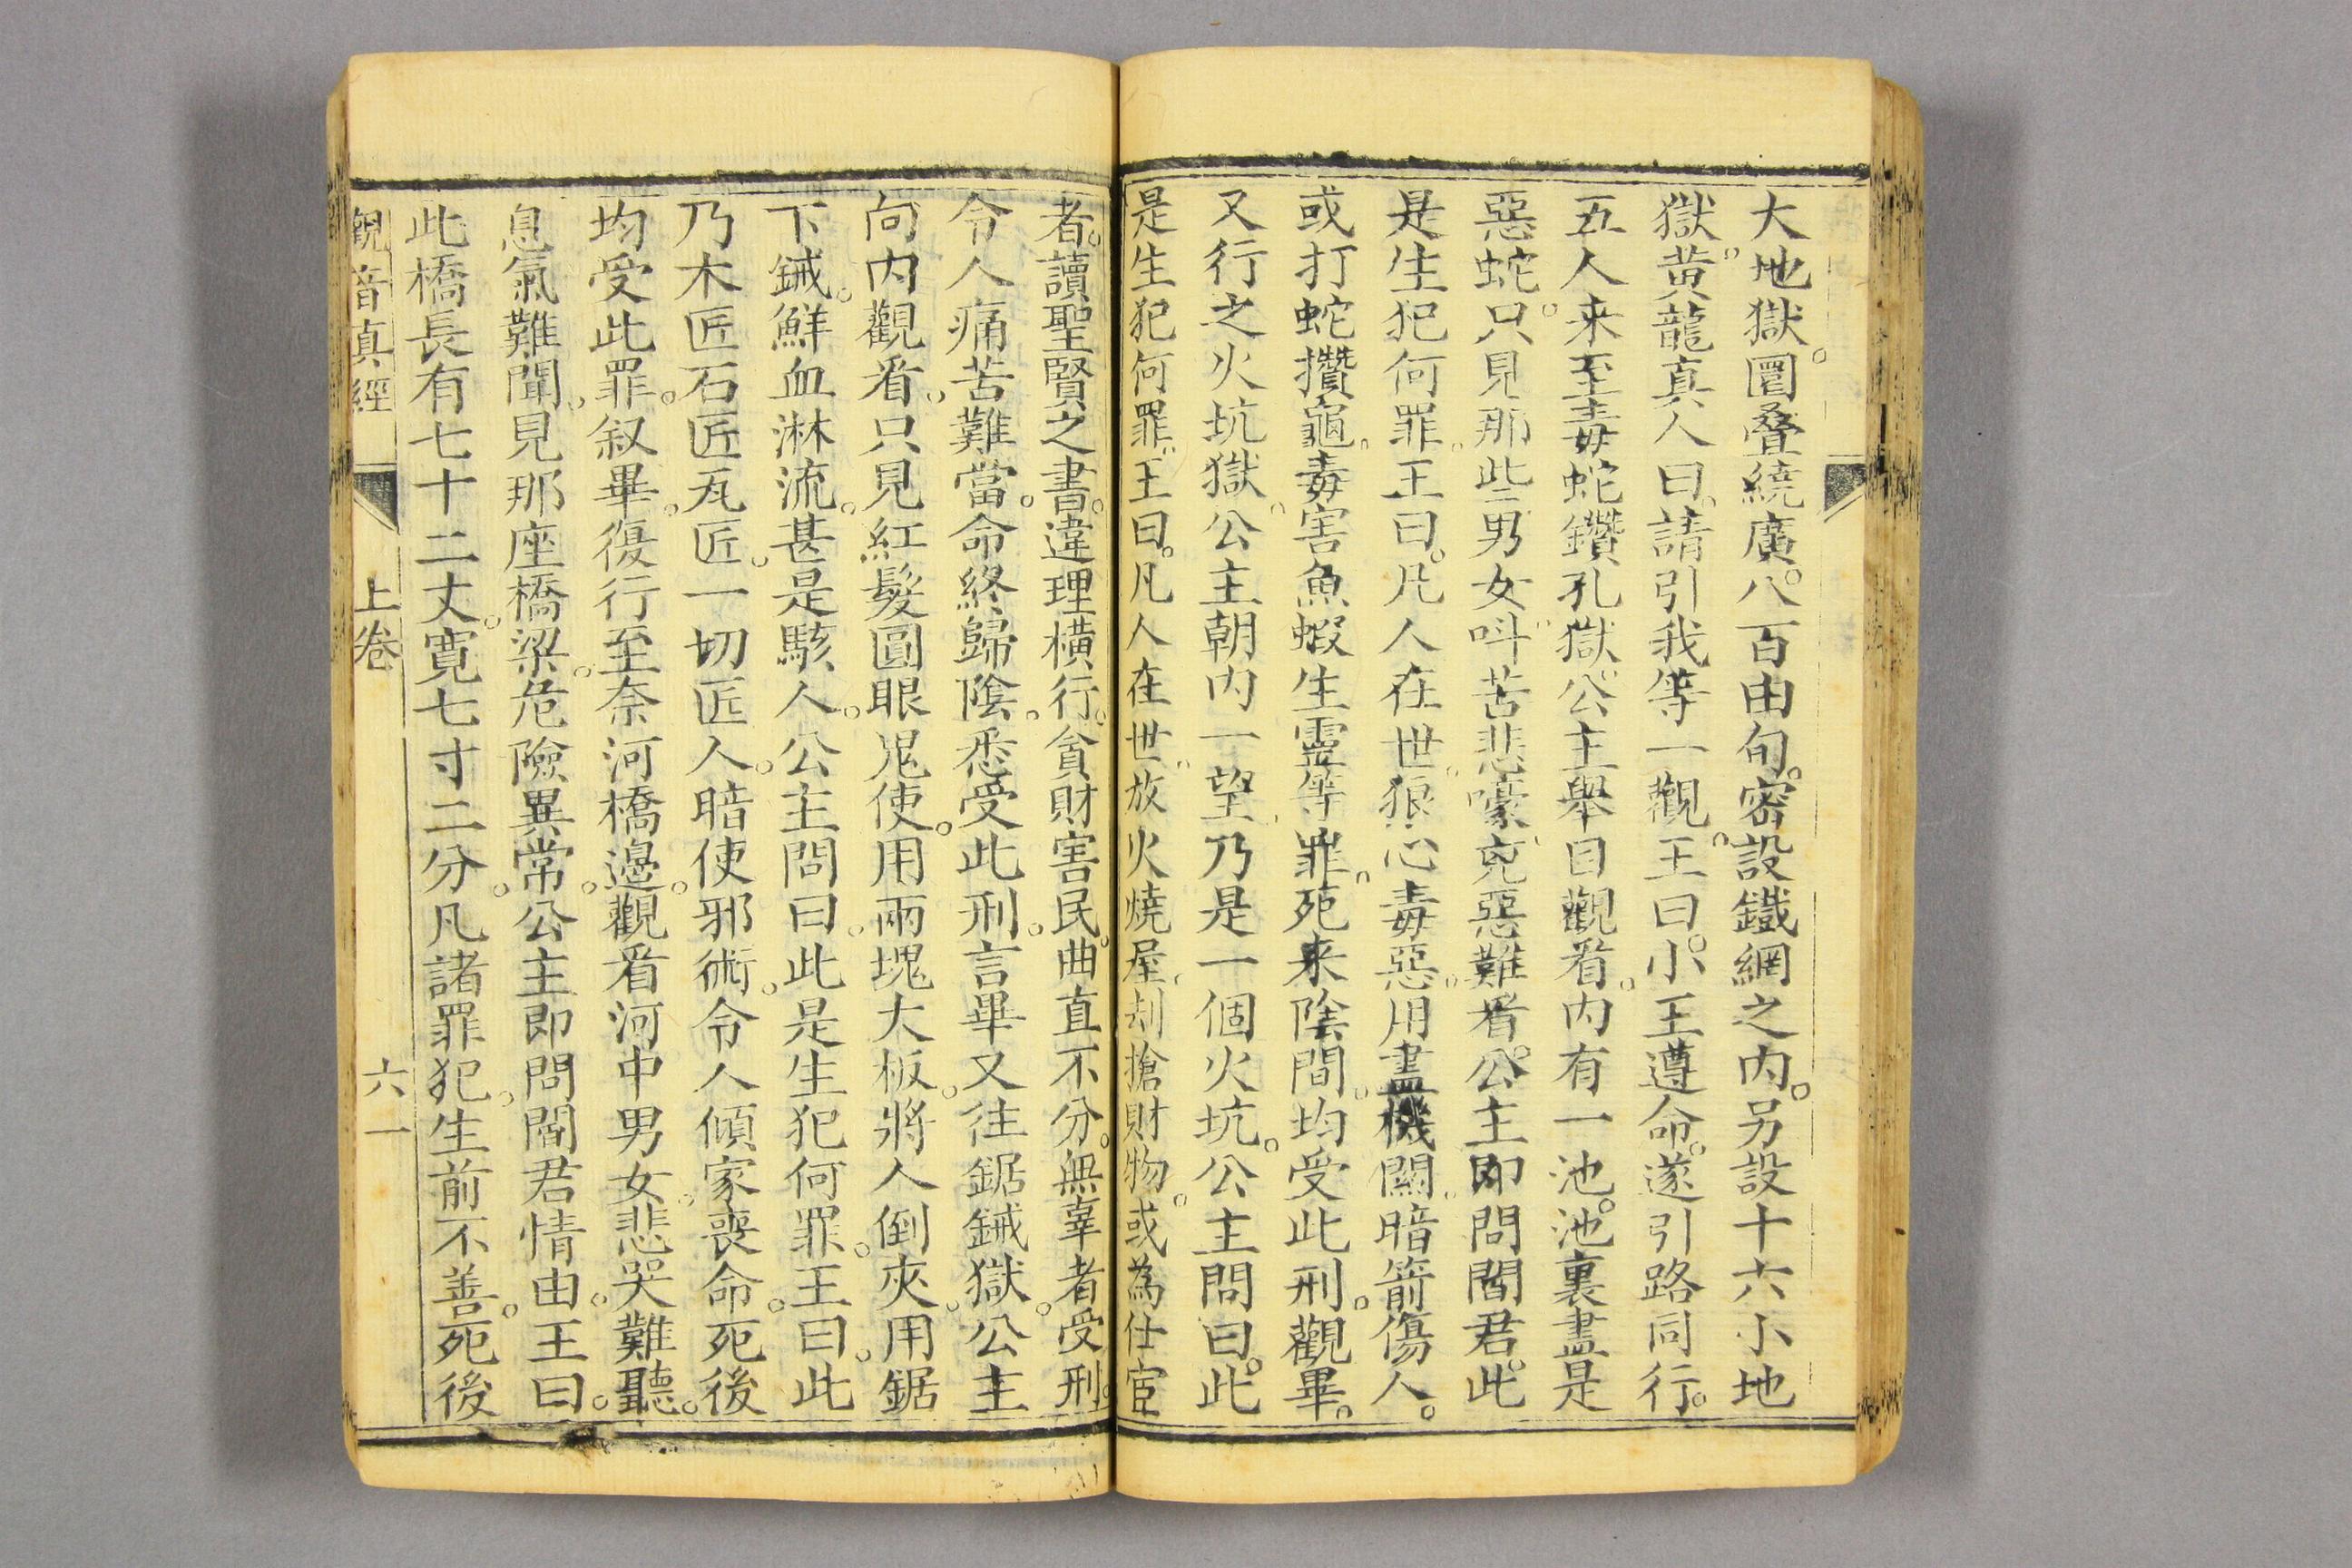 大地獄。圍疊繞廣。八百由旬。密設鐵網之内。另設十六小地
獄。黄龍真人曰。請引我等一觀。王曰。小王遵命。遂引路同行。
五人来至毒蛇鑽孔獄。公主舉目觀看。内有一池。池裏盡是
惡蛇。只見那些男女。呌苦悲嚎。兇惡難看。公主即問閻君。此
是生犯何罪。王曰。凡人在世。狠心毒惡。用盡機關。暗箭傷人。
或打蛇攢龜。毒害魚蝦生靈等罪。死来陰間。均受此刑。觀畢。
又行之火坑獄。公主朝内一望。乃是一個火坑。公主問曰。此
是生犯何罪。王曰。凡人在世。放火燒屋。刦搶財物。或為仕宦
者。讀聖賢之書。違理横行。貪財害民。曲直不分。無辜者受刑。
令人痛苦難當。命終歸陰。悉受此刑。言畢又往鋸鋮獄。公主
向内觀看。只見紅髮圓眼鬼使。用兩塊大板。將人倒夾。用鋸
下鋮。鮮血淋流。甚是駭人。公主問曰。此是生犯何罪。王曰。此
乃木匠石匠瓦匠。一切匠人。暗使邪術。令人傾家喪命。死後
均受此罪。叙畢。復行至奈河橋邊。觀看河中男女。悲哭難聽。
息氣難聞。見那座橋梁。危險異常。公主即問閻君情由。王曰。
此橋長有七十二丈。寛七寸二分。凡諸罪犯。生前不善。死後
觀音真經 上卷 六一